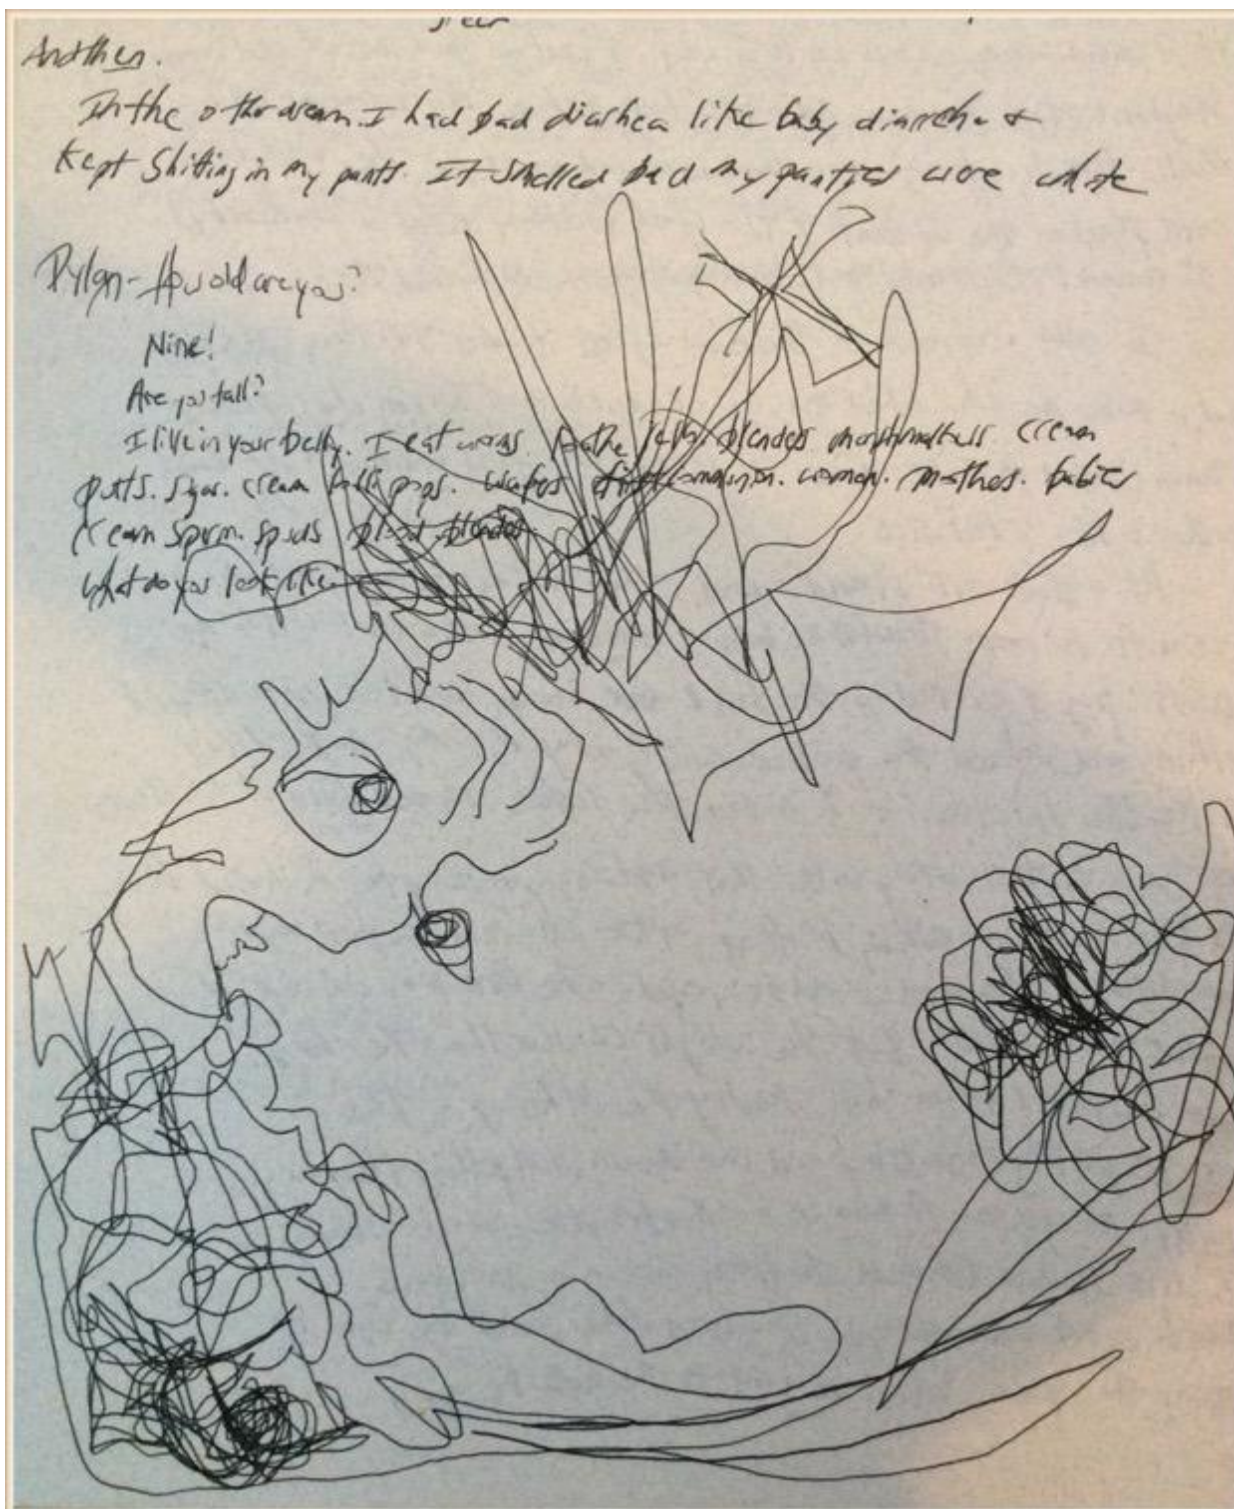 And then.
In the other dream I had bad diarhea like baby diarrhea &
kept Shitting in my pants. It smelled bad my panties were white
Dylan - How old are you?
Nine!
Are you tall?
I live in your belly. I eat blender marshmallows cream
puffs. cream pops. communion. woman. mother. babies
cream sperm. spuds blood blender.
What do you look like